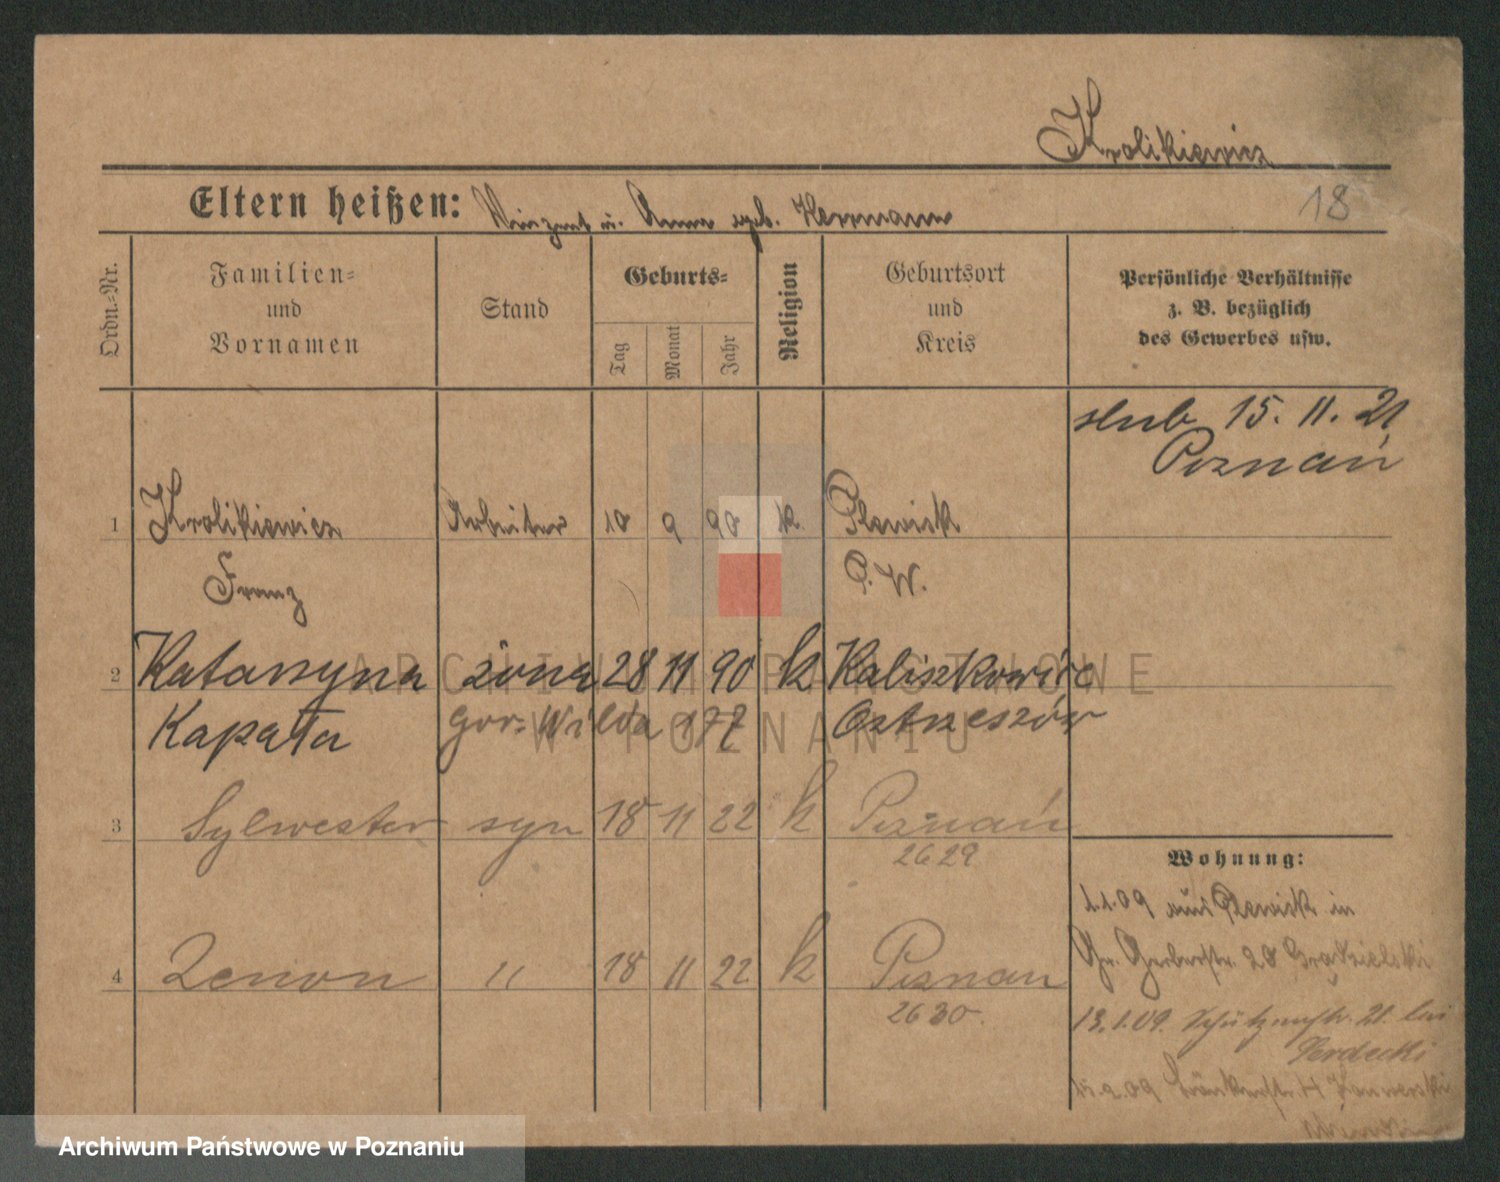 Krolikiewicz
Eltern heißen: Vinzent u. Anna geb. Herrmann
18
Ordn.-Nr.
Familien-
und
Vornamen
Stand
Geburts-
Tag
Monat
Jahr
Religion
Geburtsort
und
Kreis
Persönliche Verhältnisse
z. B. bezüglich
des Gewerbes usw.
slub 15. 11. 21
Poznań
1 Krolikiewicz Arbeiter 10 9 90 k. Plewisk
Franz P. W.
2 Katarzyna żona 28 11 90 k Kaliszkowice
Kapała Gór. Wilda 177 Ostrzeszów
3 Sylwester syn 18 11 22 k Poznań
2629
4 Zenon " 18 11 22 k Poznań
2630.
Wohnung:
1.1.09 aus Plewisk in
Gr. Gerberstr. 28
13.1.09. Schützenstr. 21. bei
15.2.09
ARCHIWUM PAŃSTWOWE
W POZNANIU
Archiwum Państwowe w Poznaniu